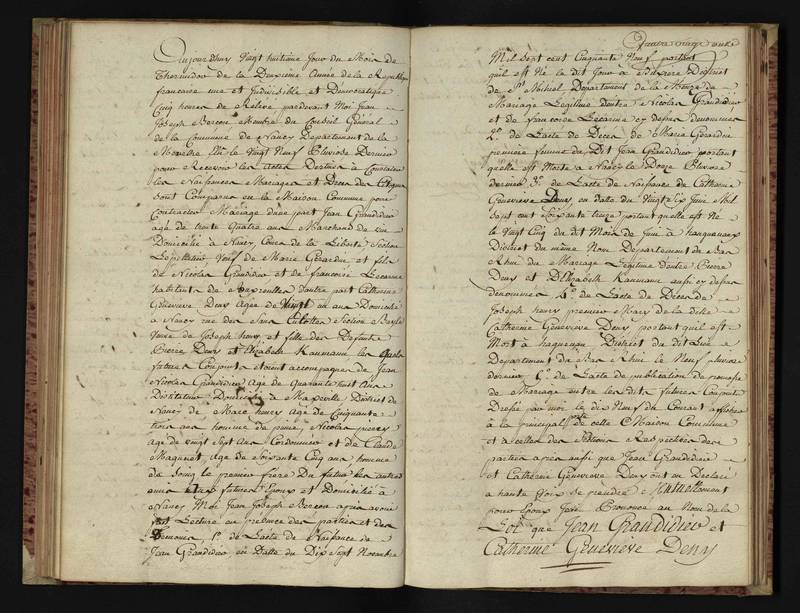 Aujourdhuy Vingt huitiéme Jour du Mois de
Thermidor de la Deuxiéme Année de la Republiq
francaise une et Indivisible et Democratique
Cinq heures de Relevé pardevant Moi Jean
Joseph Berson Membre du Conseil Général
de la Commune de Nancy Departement de la
Meurthe Elu le Vingt Neuf Pluviose Dernier
pour Recevoir les actes Destinés a Constater
les Naissances Mariages et Deces des Citoyens
Sont Comparus en la Maison Commune pour
Contracter Mariage d'une part Jean Grandidier
agé de trente quatre ans Marchand de vin
Domicilié a Nancy Cour de la Liberté Section
Lepelletier Veuf de Marie Gerardin et fils
de Nicolas Grandidier et de francoise Lecarine
habitants de D'autre part Catherine
Genevieve Deny Agée de Vingt un ans Domiciliée
a Nancy rue des Sans Culottes Section Bayle
Veuve de Joseph henry et fille des Defunts
Pierre Deny et Elizabeth Kaumann les Quels
futurs Conjoints etoient accompagnés de Jean
Nicolas Grandidier Agé de Quarante huit ans
Instituteur Domicilié a Maxeville District de
Nancy de Marc henry agé de Cinquante
trois ans homme de peine, Nicolas pierre
agé de vingt Sept ans Cordonnier et de Claude
Maguet, agé de Soixante Cinq ans homme
de le premier frere Du futur les autres
amis des futurs Epoux et Domiciliés a
Nancy Moi Jean Joseph Berson apres avoir
fait Lecture en presence des parties et des
Temoins, 1º de L'acte de Naissance de
Jean Grandidier en Datte du Dix Sept Novembre
Mil Sept cent Cinquante Neuf portant
quil est Né le dit Jour a District
de St Mihiel, Departement de la Meuze de
Mariage Legitime d'entre Nicolas Grandidier
et de francoise Lecarine cy devant denommés
2º de L'acte de Deces de Marie Gerardin
premiere femme du Dit Jean Grandidier portant
quelle est Morte a Nancy le Douze Pluviose
dernier 3º de L'acte de Naissance de Catherine
Genevieve Deny en datte du Vingt Six Juin Mil
Sept cent Soixante treize portant quelle est Née
le Vingt Cinq du dit Mois de Juin a hagueneaux
District du même Nom Departement du Bas
Rhin du Mariage Legitime d'entre Pierre
Deny et D'Elizabeth Kaumann aussi cy devant
denommés 4º de L'acte de Deces de
Joseph henry premier Mary de la ditte
Catherine Genevieve Deny portant quil est
Mort a haguenau District du dit Lieu
Departement du Bas Rhin le Neuf pluviose
dernier 5º de L'acte de publication de promesse
de Mariage entre les dits futurs Conjoints
Dressé par moi le dix Neuf du Courant affichée
a la principale porte de cette Maison Commune
et a celles des Sections Respectives des
parties apres aussi que Jean Grandidier
et Catherine Genevieve Deny ont eu Declaré
a haute voix Se prendre Mutuellement
pour Epoux J'ai Prononcé au Nom de la
Loi que Jean Grandidier et
Catherine Genevieve Deny